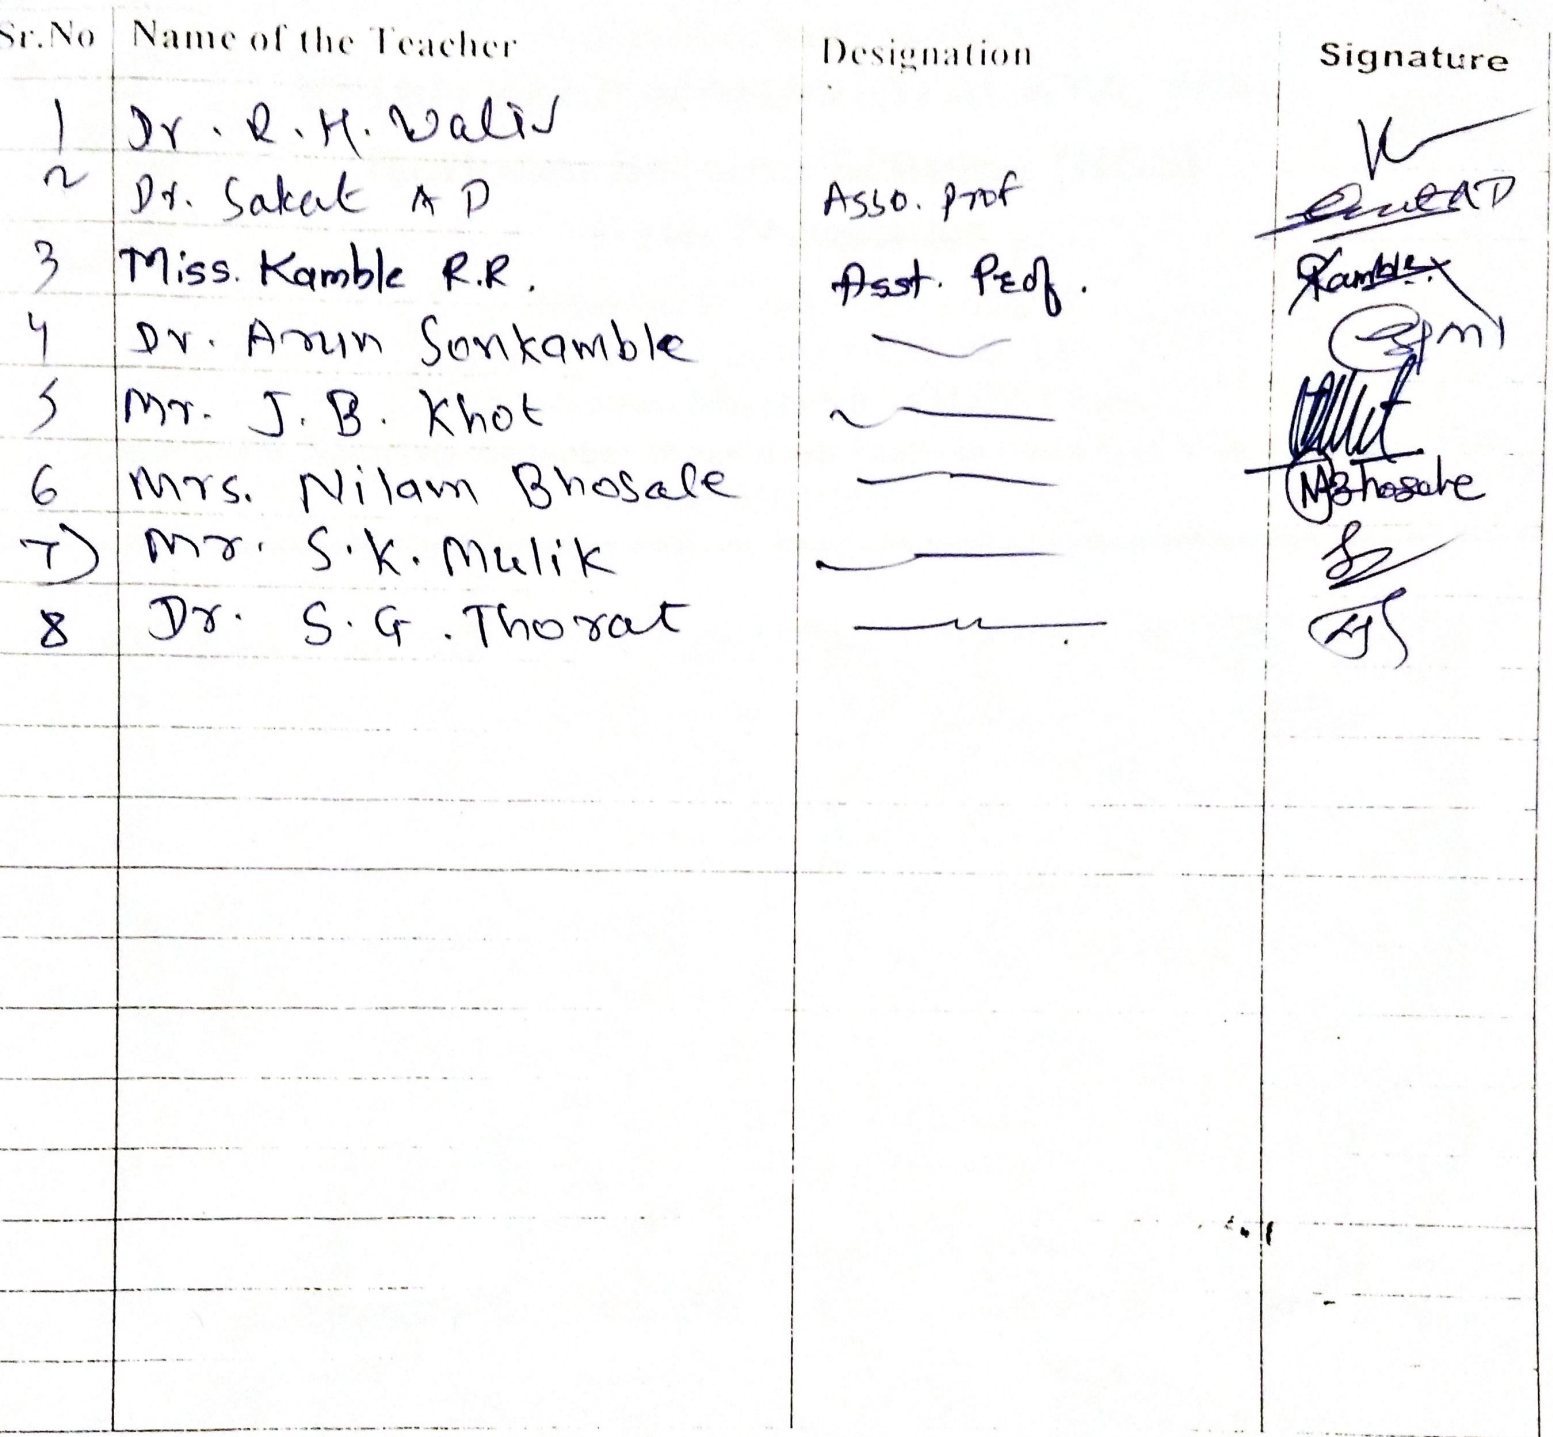 Sr.No Name of the Teacher Designation Signature
1 Dr. R. H. Waliv
2 Dr. Sakat A D Asso. Prof
3 Miss. Kamble R.R. Asst. Prof. Kamble
4 Dr. Arun Sonkamble
5 Mr. J. B. Khot
6 Mrs. Nilam Bhosale NBhosale
7) Mr. S. K. Mulik
8 Dr. S. G. Thorat